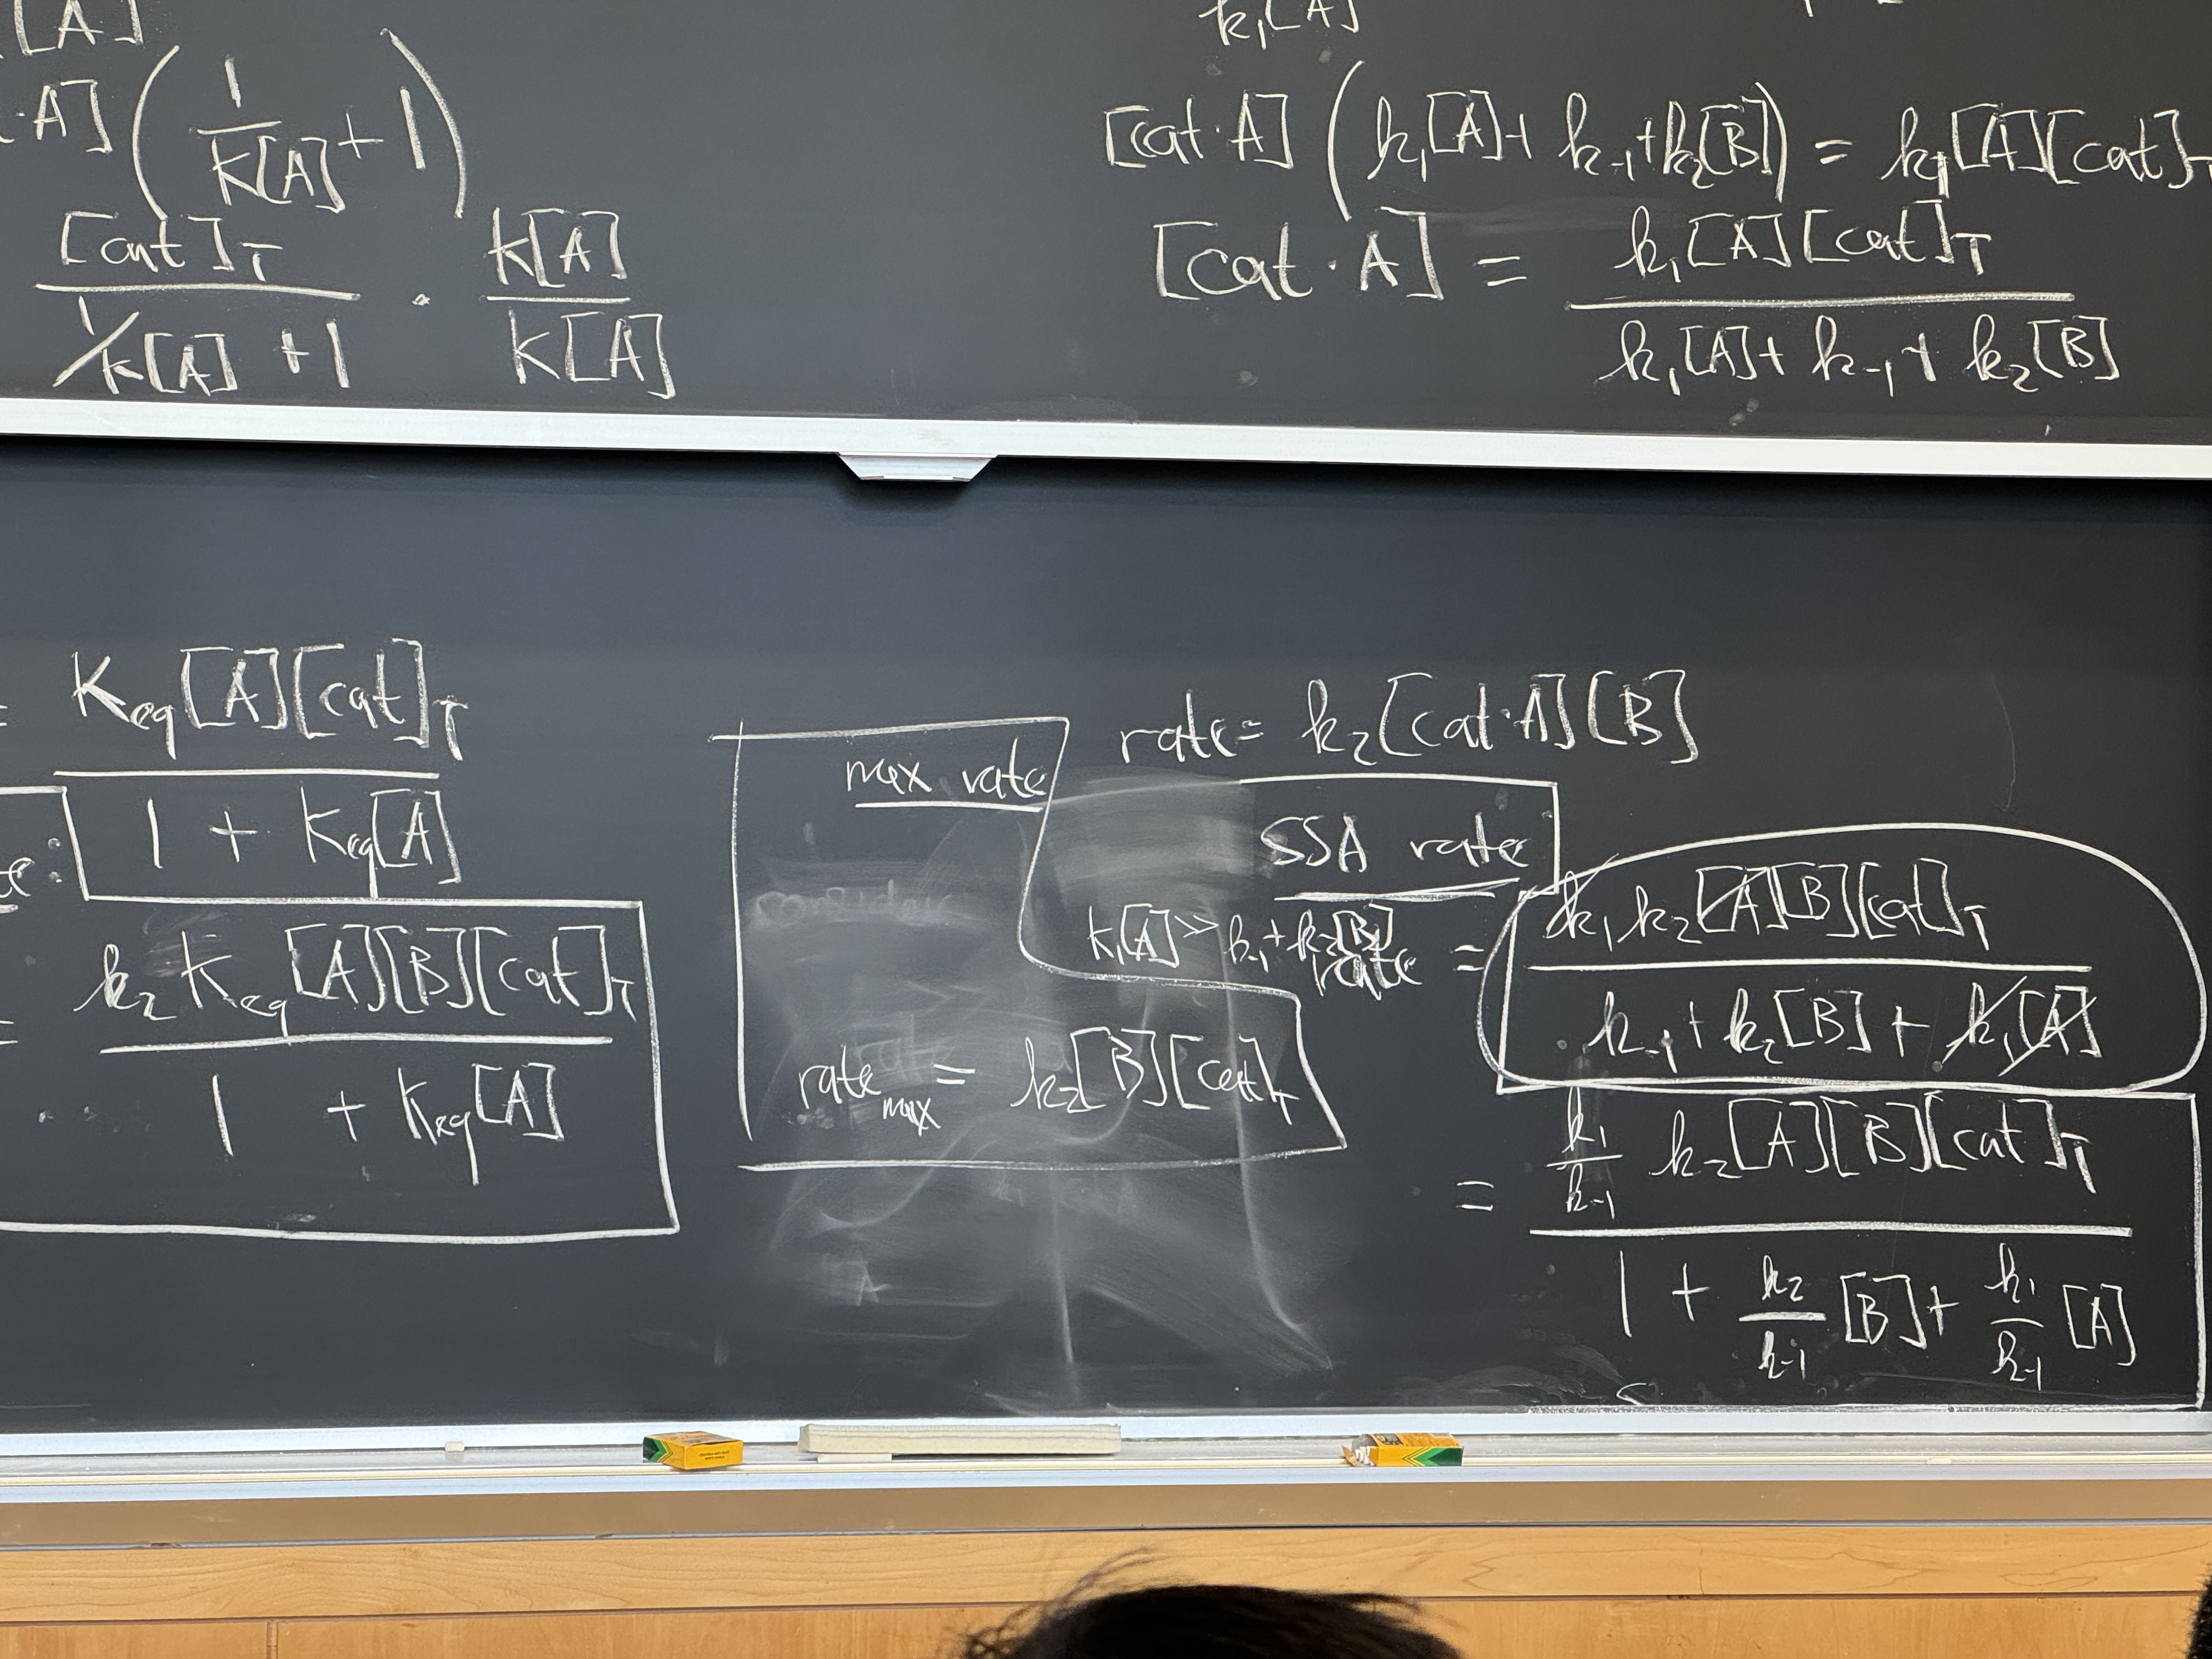 [A]
·A] ( 1 / K[A] + 1 )
[cat]T / (1/K[A] + 1) · K[A] / K[A]
k₁[A]
[cat·A] ( k₁[A] + k₋₁ + k₂[B] ) = k₁[A][cat]T
[cat·A] = k₁[A][cat]T / k₁[A] + k₋₁ + k₂[B]
= Keq[A][cat]T / 1 + Keq[A]
= k₂ Keq [A][B][cat]T / 1 + Keq[A]
max rate
k₁[A] >> k₋₁ + k₂[B]
rate max = k₂[B][cat]T
rate = k₂[cat·A][B]
SSA rate
rate = k₁k₂[A][B][cat]T / k₋₁ + k₂[B] + k₁[A]
= k₁/k₋₁ k₂[A][B][cat]T / 1 + k₂/k₋₁ [B] + k₁/k₋₁ [A]